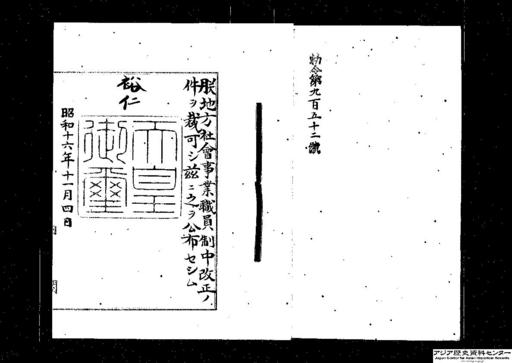 勅令第九百五十二號
朕地方社會事業職員制中改正ノ
件ヲ裁可シ茲ニ之ヲ公布セシム
裕仁
天皇
御璽
昭和十六年十一月四日
アジア歴史資料センター
Japan Center for Asian Historical Records